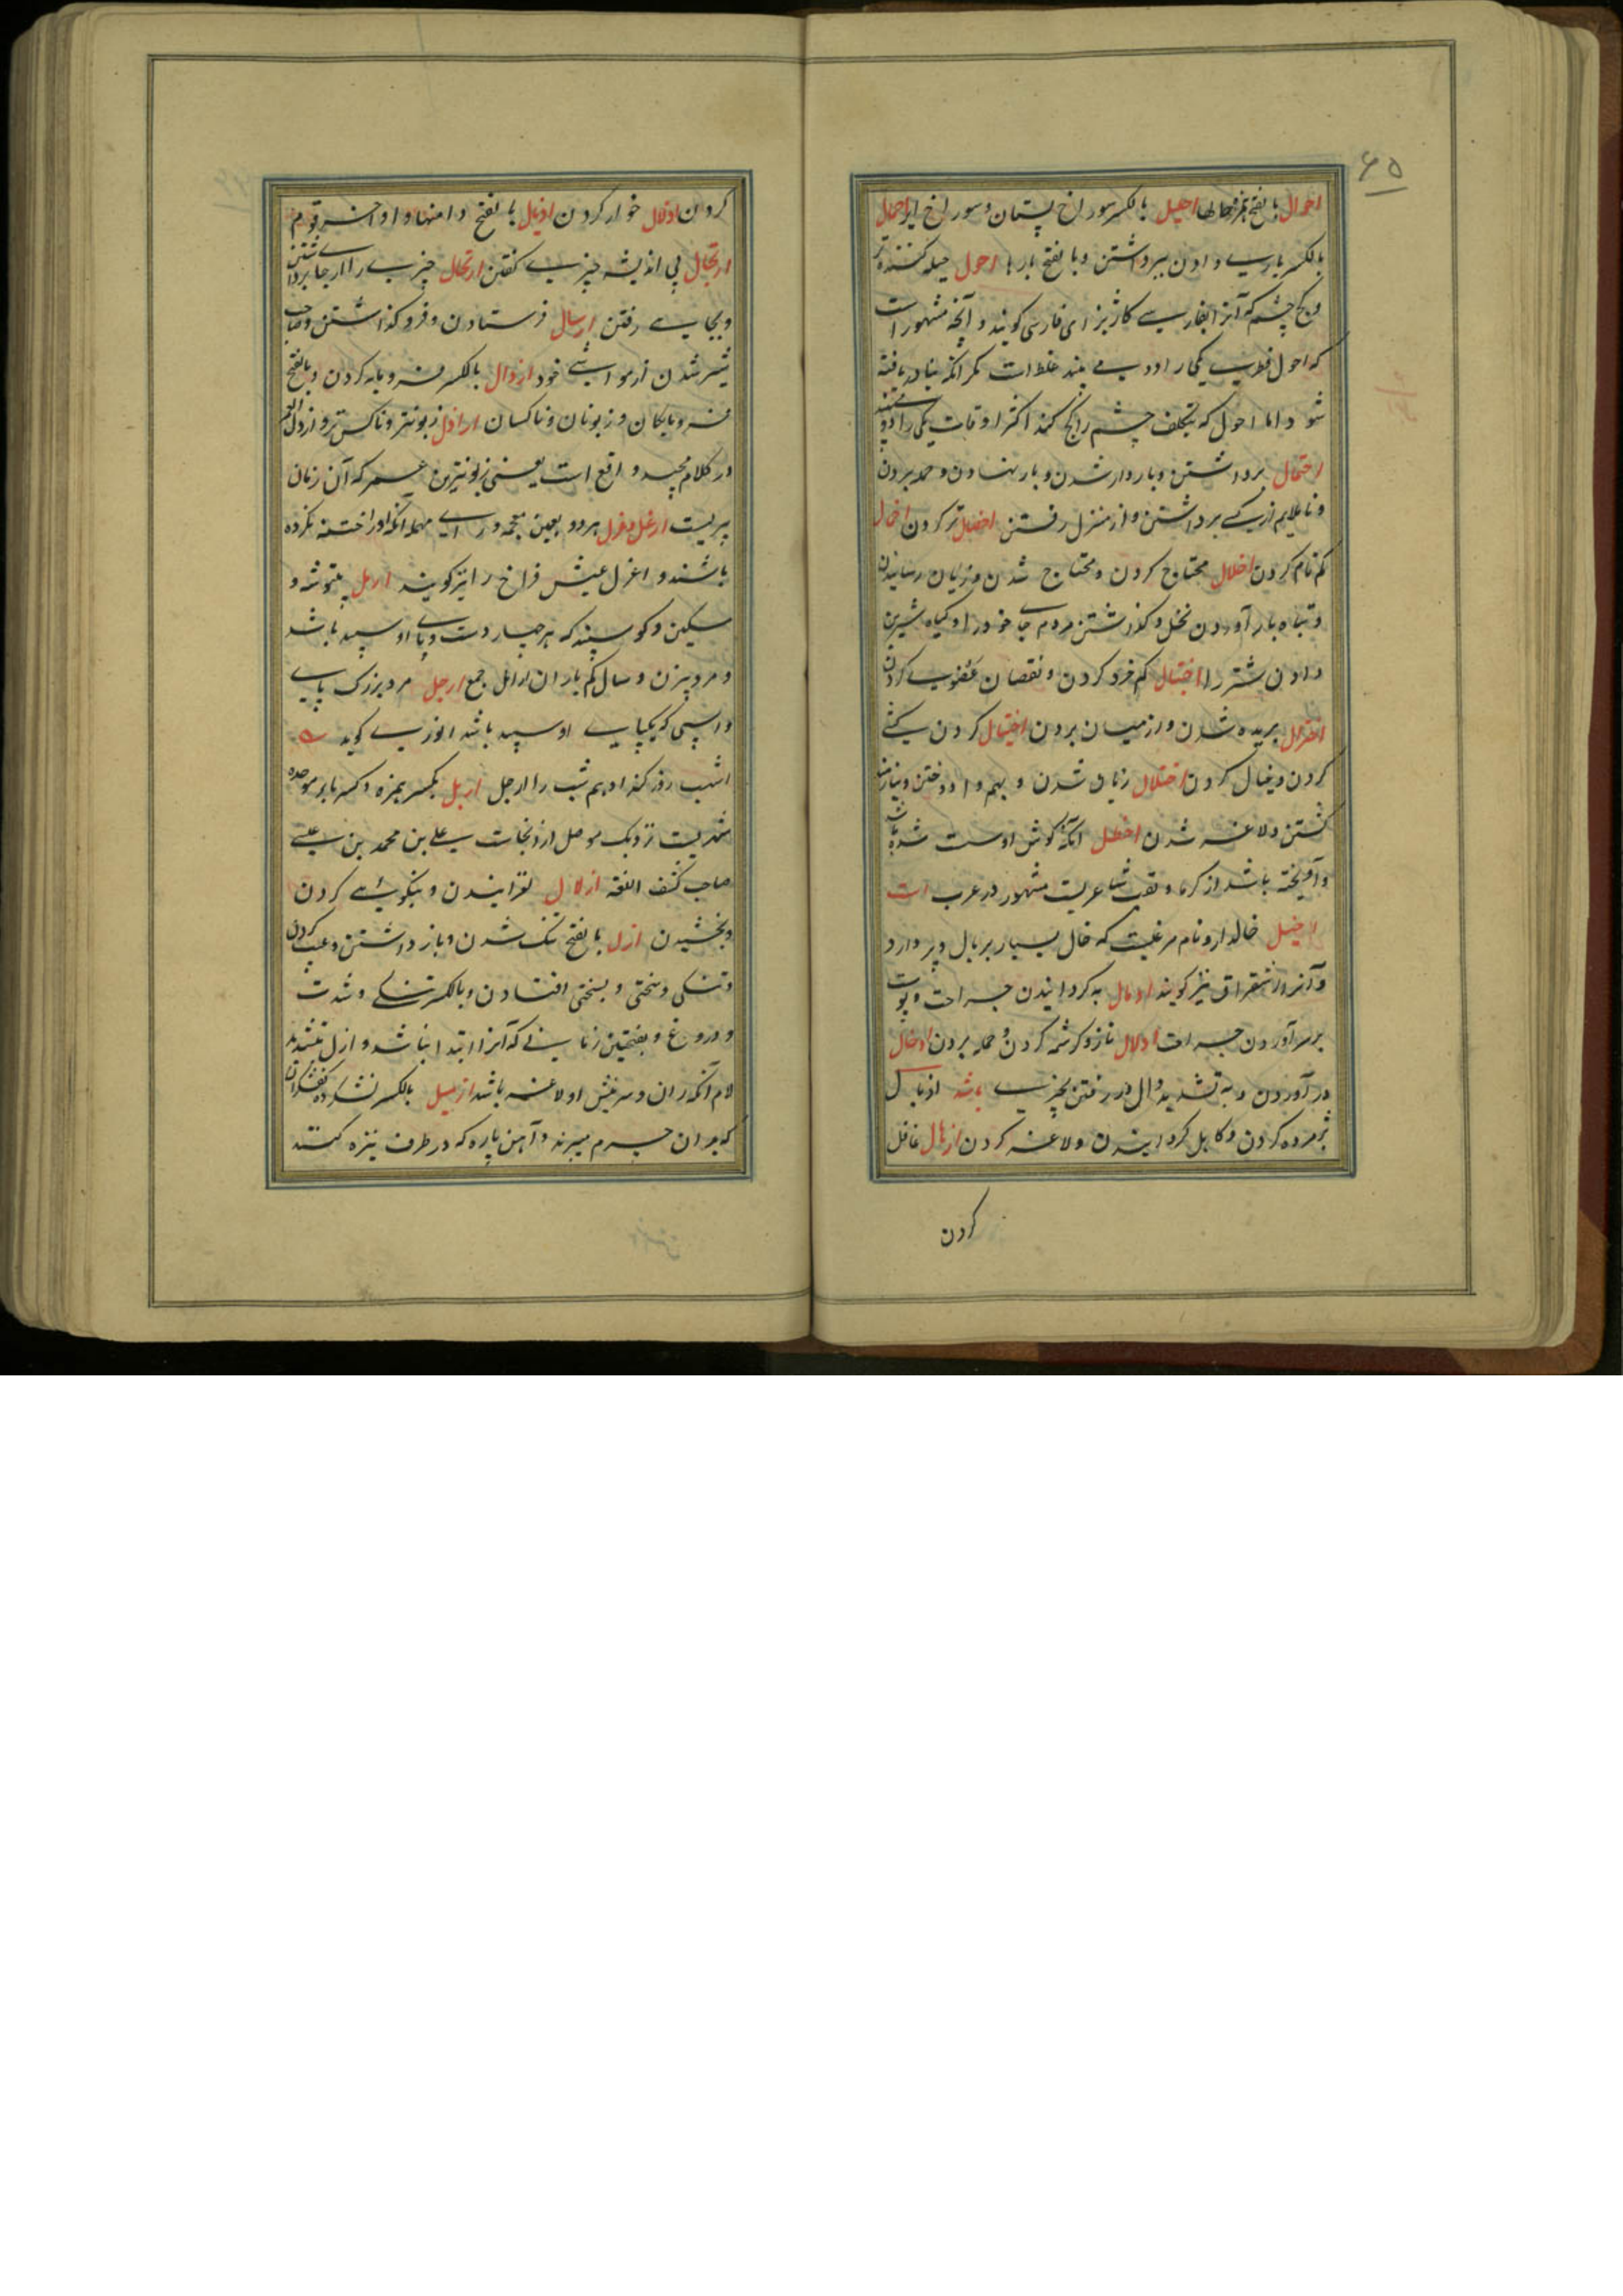 ۶۵
احوال بالفتح بمعنی حالها احلیل بالکسر سوراخ پستان و سوراخ ایر احمال
بالکسر یاری دادن ببرداشتن و بالفتح بارها احول حیله کننده تر
و کج چشم که آنرا بفارسی کاژ بزای فارسی گویند و آنچه مشهور است
که احول فطری یکی را دو می بیند غلط است مگر آنکه
شود اما احول که بتکلف چشم را کج کند اکثر اوقات یکی را دو بیند
احتمال برداشتن و باردار شدن و بار نهادن و حمله بردن
و ناملایم از کسی برداشتن و از منزل رفتن اخضال تر کردن اخمال
گم نام کردن اخلال محتاج کردن و محتاج شدن و زیان رسانیدن
و تباه بار آوردن نخل و گذاشتن مردم جای خود را و گیاه شیرین
دادن شتر را اختبال کم خرد کردن و نقصان عضوی کردن
اختزال بریده شدن و از میان بردن اختیال کردن کشی
کردن و خیال کردن اختلال زیان شدن و بهم وا دوختن و نیازمند
گشتن و لاغر شدن اخطل آنکه گوش او سست شده باشد
و آویخته باشد از گرما و لقب شاعریست مشهور در عرب است
اخیل خالدار و نام مرغیست که خال بسیار بر بال و پر دارد
و آنرا شقراق نیز گویند ادمال به گردانیدن جراحت و پوست
برسر آوردن جراحت ادلال ناز و کرشمه کردن و حمله بردن ادخال
در آوردن و به تشدید دال در رفتن بچیزی باشد اذبال
پژمرده کردن و کاهل گردانیدن و لاغر کردن اذهال غافل
کردن
کردن اذلال خوار کردن اذیال بالفتح دامنها و اواخر قوم
ارتجال بی اندیشه چیزی گفتن ارتحال چیزی را از جا برداشتن
و بجایی رفتن ارسال فرستادن و فرو گذاشتن و صاحب
شیر شدن از مواشی خود ارذال بالکسر فرومایه کردن و بالفتح
فرومایگان و زبونان و ناکسان ارذل زبونتر و ناکس تر و ارذل العمر
در کلام مجید واقع است یعنی زبونترین عمر که آن زمان
پیریست ارغل و اغرل هر دو بغین معجمه و رای مهمله آنکه او را ختنه نکرده
باشند و اغرل عیش فراخ را نیز گویند ارمل بیتوشه و
مسکین و گوسپند که هر چهار دست و پای او سپید باشد
و مرد بیزن و سال کم باران ارامل جمع ارجل مرد بزرگ پای
و اسپی که یکپای او سپید باشد انوری گوید
اشهب روز کند ادهم شب را ارجل اربل بکسر همزه و کسر بای موحده
شهریست نزدیک موصل از آنجاست علی بن محمد بن عیسی
صاحب کشف الغمه ازلال لغزانیدن و نیکویی کردن
و بخشیدن ازل بالفتح تنگ شدن و باز داشتن و عیب کردن
و تنگی و سختی و بسختی افتادن و بالکسر تنگی و شدت
و دروغ و بفتحتین زمانی که آنرا ابتدا نباشد و ازل بتشدید
لام آنکه ران و سرینش او لاغر باشد ازمیل بالکسر نشکرده کفشگران
که بدان چرم میبرند و آهن پاره که در طرف نیزه کنند